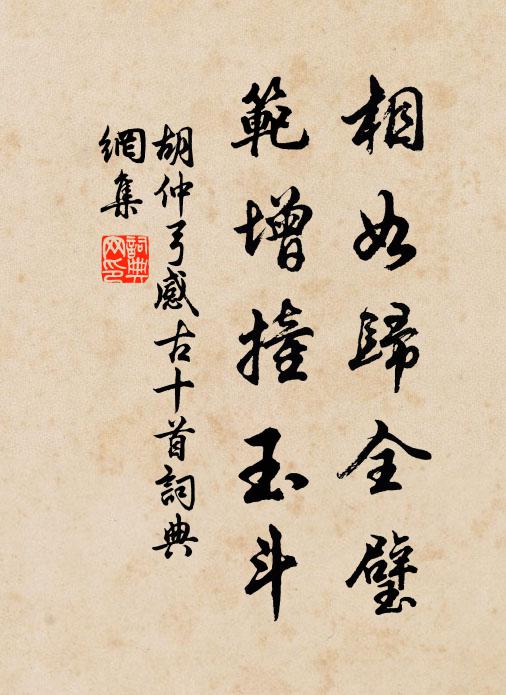 相如歸全璧
範增撞玉斗
胡仲弓感古十首詞典
網集
詞典
网印